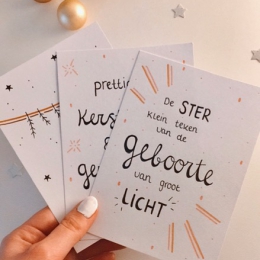 prettig
Kers
&
ge
De STER
klein teken
van de
geboorte
van groot
LICHT